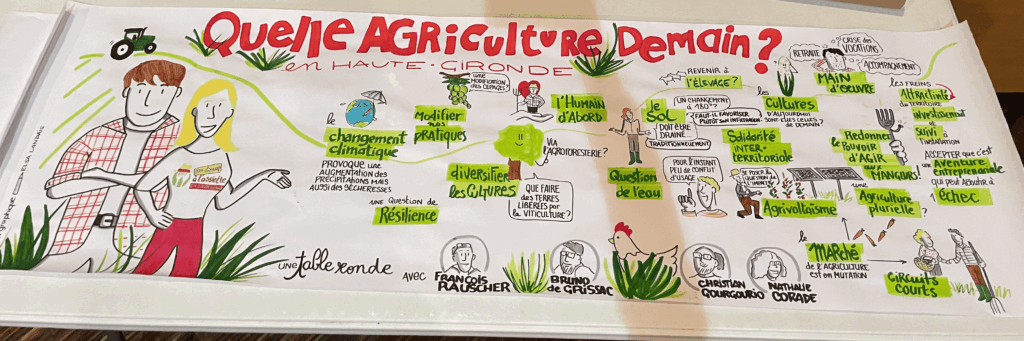 Quelle AGRiculture Demain ?
en HAUTE-GIRONDE
le changement climatique
PROVOQUE UNE
AUGMENTATION DES
PRÉCIPITATIONS MAIS
AUSSI DES SÉCHERESSES
UNE QUESTION de
Résilience
Modifier
nos
PRATIQUES
UNE
MODIFICATION
DES CÉPAGES
diversifier
les CULTURES
l'HUMAIN
D'ABORD
VIA
l'AGROFORESTERIE ?
QUE FAIRE
DES TERRES
LIBÉRÉES PAR
la VITICULTURE ?
REVENIR à
l'ÉLEVAGE ?
le
SOL
DOIT ÊTRE
DRAINÉ
TRADITIONNELLEMENT
UN CHANGEMENT
à 180° ?
FAUT-IL FAVORISER
PLUTÔT SON INFILTRATION
Question
de l'eau
POUR l'INSTANT
PEU de CONFLIT
D'USAGE
les
Cultures
D'AUJOURD'HUI
SONT-ELLES CELLES
de DEMAIN ?
Solidarité
INTER-
territoriale
SE POSER la
QUESTION de
Agrivoltaïsme
RETRAITE
CRISE des
VOCATIONS
ACCOMPAGNEMENT
MAIN
D'OEUVRE
Redonner
le POUVOIR
D'AGIR
aux
MANGEURS !
une
Agriculture
plurielle ?
les FREINS
Attractivité
du TERRITOIRE
investissement
Suivi
à
l'installation
ACCEPTER que C'EST
une
AVENTURE
entreprenariale
qui peut ABOUTIR à
1 échec
le
MARCHÉ
de l'AGRICULTURE
EST en MUTATION
CIRCUITS
courts
UNE table ronde
avec
FRANÇOIS
RAUSCHER
BRUNO
de GRISSAC
CHRISTIAN
GOURGOURIO
NATHALIE
CORADE
à l'assiette
graphique
ELSA LANDAIS